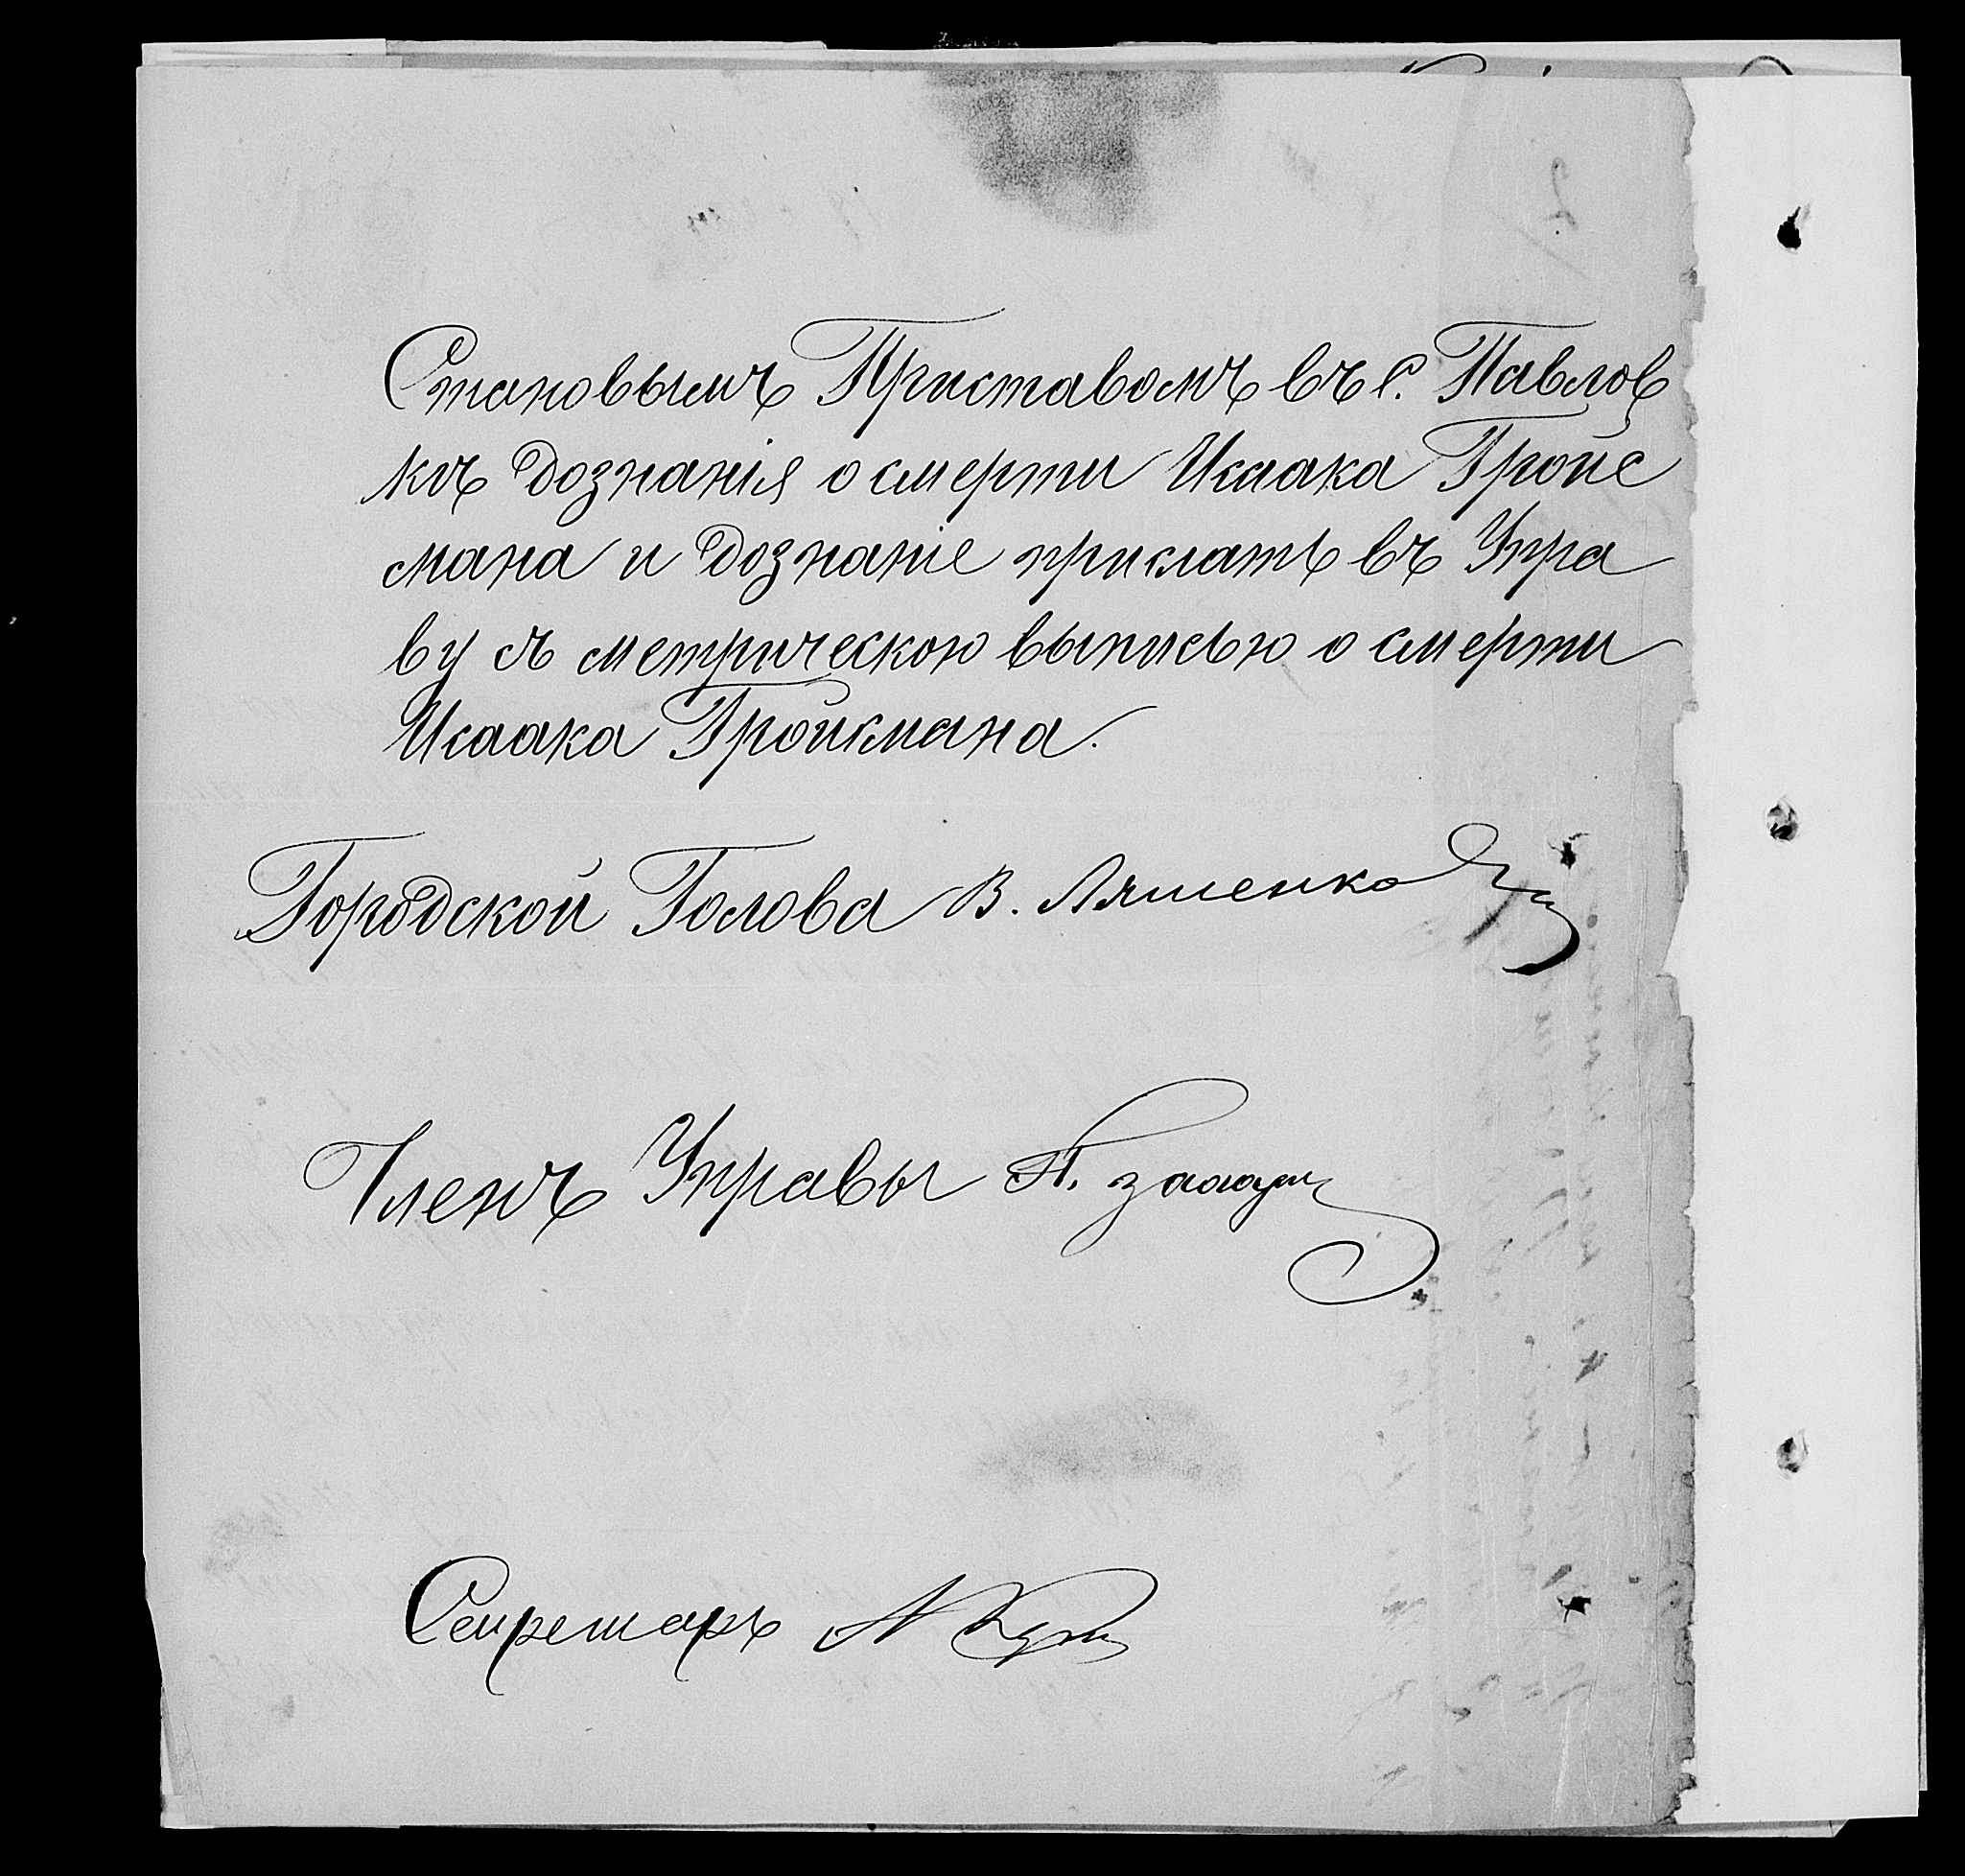 Становымъ Приставомъ въ с. Павлов
кѣ дознанія о смерти Исаака Гройс
мана и дознаніе прислать въ Упра
ву съ метрическою выписью о смерти
Исаака Гройсмана.
Городской Голова В. Ляшенко
Членъ Управы
Секретарь